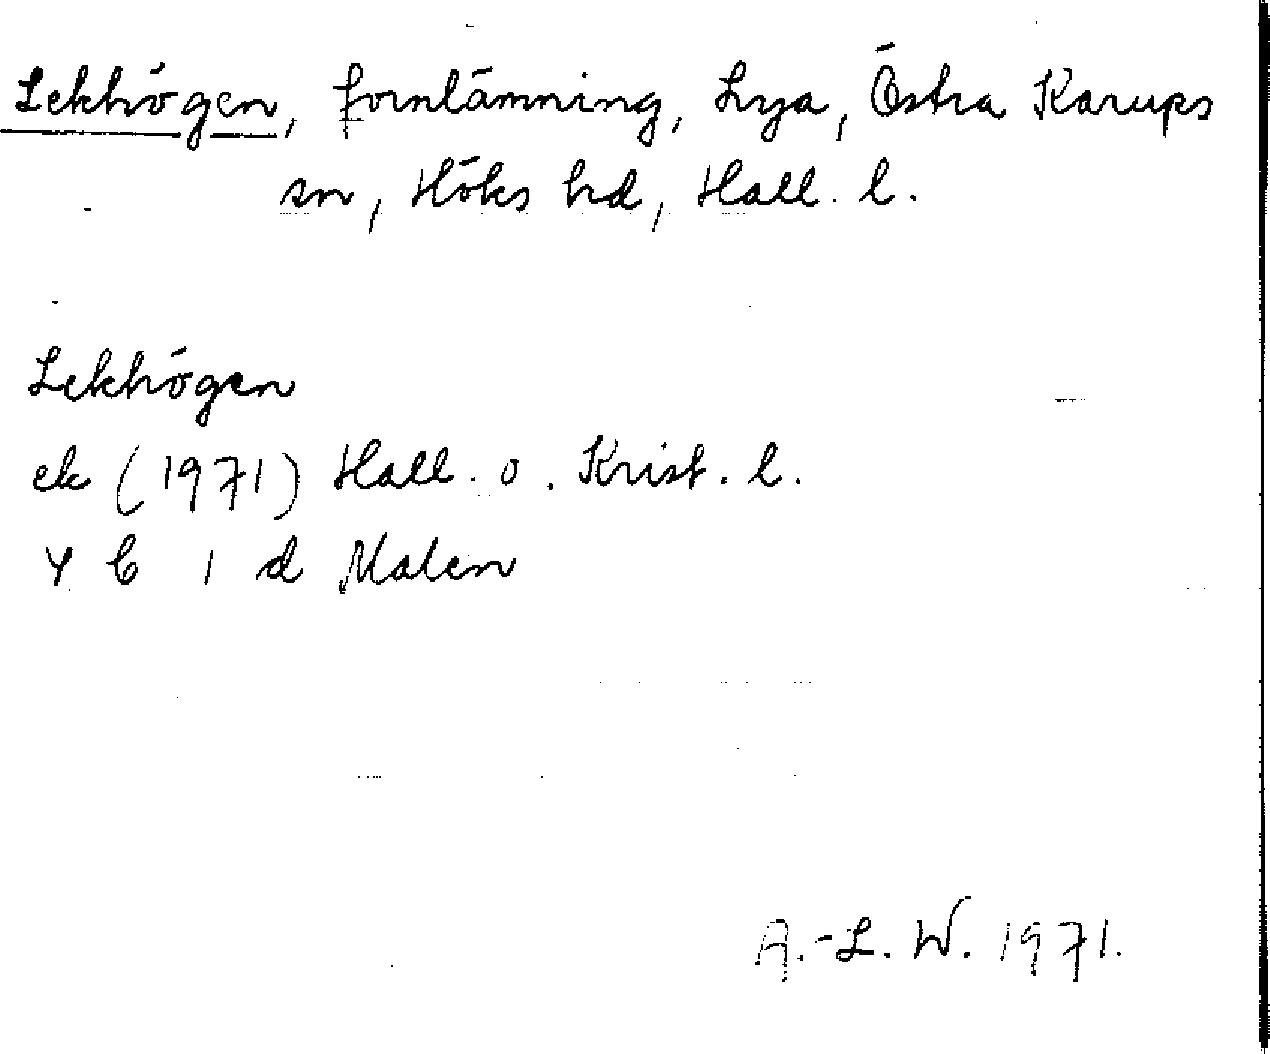 Lekhögen, fornlämning, Lya, Östra Karups
sn, Höks hd, Hall. l.
Lekhögen
ek (1971) Hall. o. Krist. l.
4 C 1 d Malen
A.-L. W. 1971.